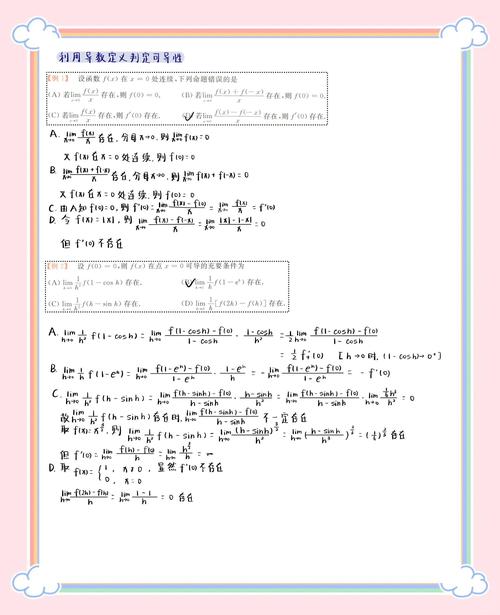 利用导数定义判定可导性
【例1】 设函数 f(x) 在 x = 0 处连续,下列命题错误的是
(A) 若 lim_{x→0} f(x)/x 存在,则 f(0) = 0. (B) 若 lim_{x→0} [f(x) + f(−x)]/x 存在,则 f(0) = 0.
(C) 若 lim_{x→0} f(x)/x 存在,则 f′(0) 存在. (D) 若 lim_{x→0} [f(x) − f(−x)]/x 存在,则 f′(0) 存在.
A. lim_{x→0} f(x)/x 存在, 分母x→0, 则 lim_{x→0} f(x) = 0
又 f(x) 在 x = 0 处连续, 则 f(0) = 0
B. lim_{x→0} [f(x) + f(-x)]/x 存在, 分母x→0, 则 lim_{x→0} f(x) + f(-x) = 0
又 f(x) 在 x = 0 处连续, 则 f(0) = 0
C. 由 A 知 f(0) = 0, 则 f'(0) = lim_{x→0} [f(x) - f(0)]/x = lim_{x→0} f(x)/x = f'(0)
D. 令 f(x) = |x|, 则 lim_{x→0} [f(x) - f(-x)]/x = lim_{x→0} [|x| - |-x|]/x = 0
但 f'(0) 不存在
【例2】 设 f(0) = 0,则 f(x) 在点 x = 0 可导的充要条件为
(A) lim_{h→0} 1/h² f(1 − cos h) 存在. (B) lim_{h→0} 1/h f(1 − e^h) 存在.
(C) lim_{h→0} 1/h² f(h − sin h) 存在. (D) lim_{h→0} 1/h [f(2h) − f(h)] 存在.
A. lim_{h→0} 1/h² f(1 - cosh) = lim_{h→0} [f(1 - cosh) - f(0)]/(1 - cosh) · (1 - cosh)/h² = 1/2 lim_{h→0} [f(1 - cosh) - f(0)]/(1 - cosh)
= 1/2 f'₊(0) [h→0时, (1 - cosh)→0⁺]
B. lim_{h→0} 1/h f(1 - e^h) = lim_{h→0} [f(1 - e^h) - f(0)]/(1 - e^h) · (1 - e^h)/h = - lim_{h→0} [f(1 - e^h) - f(0)]/(1 - e^h) = - f'(0)
C. lim_{h→0} 1/h² f(h - sinh) = lim_{h→0} [f(h - sinh) - f(0)]/(h - sinh) · (h - sinh)/h² = lim_{h→0} [f(h - sinh) - f(0)]/(h - sinh) · lim_{h→0} (1/6 h³)/h² = 0
故 lim_{h→0} 1/h² f(h - sinh) 存在时, lim_{h→0} [f(h - sinh) - f(0)]/(h - sinh) 不一定存在
取 f(x) = x^{2/3}, 则 lim_{h→0} 1/h² f(h - sinh) = lim_{h→0} (h - sinh)^{2/3}/h² = lim_{h→0} ((h - sinh)/h³)^{2/3} = (1/6)^{2/3} 存在
但 f'(0) = lim_{h→0} [f(h) - f(0)]/h = lim_{h→0} h^{2/3}/h = ∞
D. 取 f(x) = { 1, x ≠ 0 , 显然 f'(0) 不存在
0, x = 0
lim_{h→0} [f(2h) - f(h)]/h = lim_{h→0} (1 - 1)/h = 0 存在